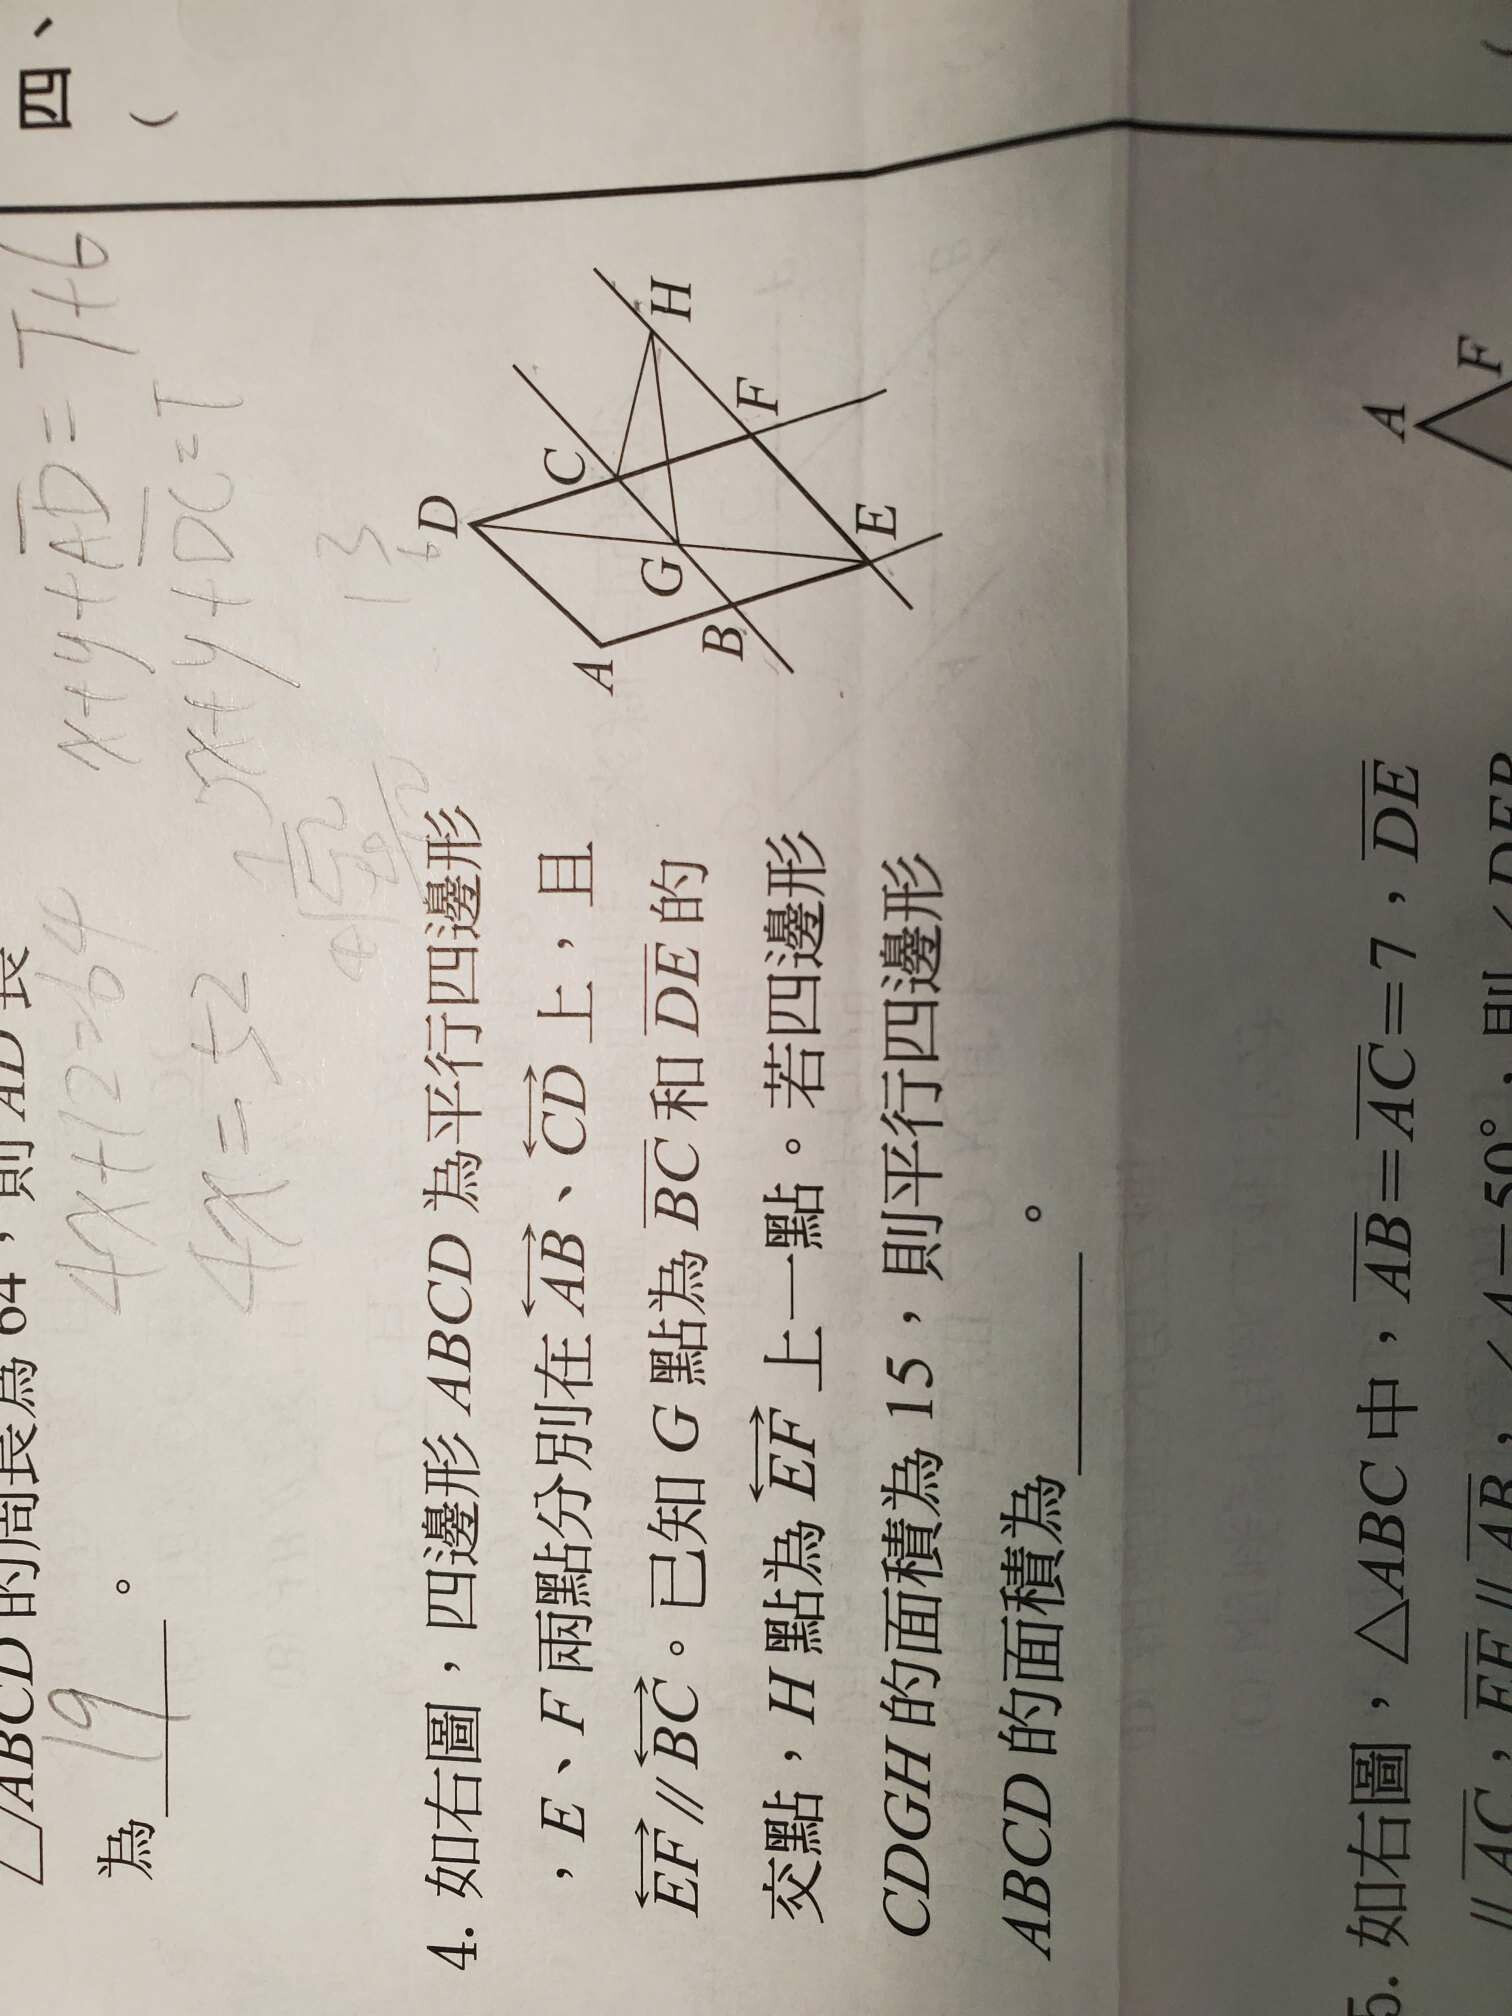 四、
(
▱ABCD 的周長為 64，則 AD 長
為 19 。
4x+12=64
4x=52
x+y+AD=T+6
3x+y+DC=T
13
4. 如右圖，四邊形 ABCD 為平行四邊形
，E、F 兩點分別在 AB、CD 上，且
EF // BC。已知 G 點為 BC 和 DE 的
交點，H 點為 EF 上一點。若四邊形
CDGH 的面積為 15，則平行四邊形
ABCD 的面積為 。
A
B
C
D
E
F
G
H
5. 如右圖，△ABC 中，AB=AC=7，DE
// AC，EF // AB，
A
F